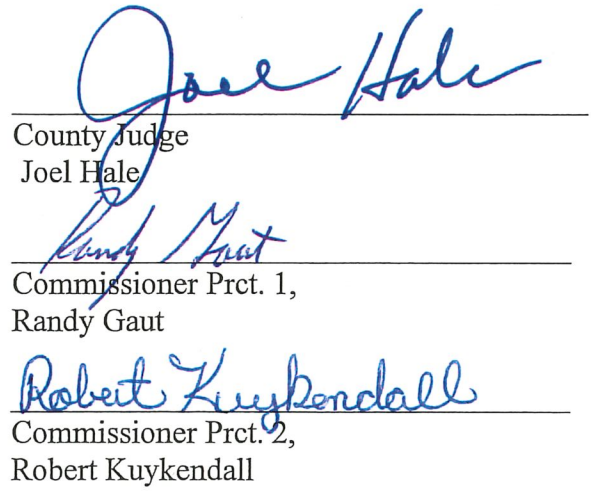 Joel Hale
County Judge
Joel Hale
Randy Gaut
Commissioner Prct. 1,
Randy Gaut
Robert Kuykendall
Commissioner Prct. 2,
Robert Kuykendall